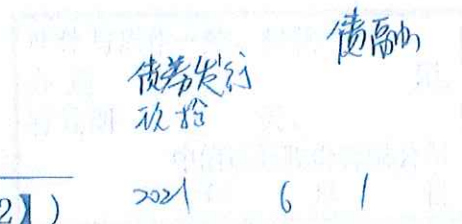 债融
债券发行
2】) 2021 6 1